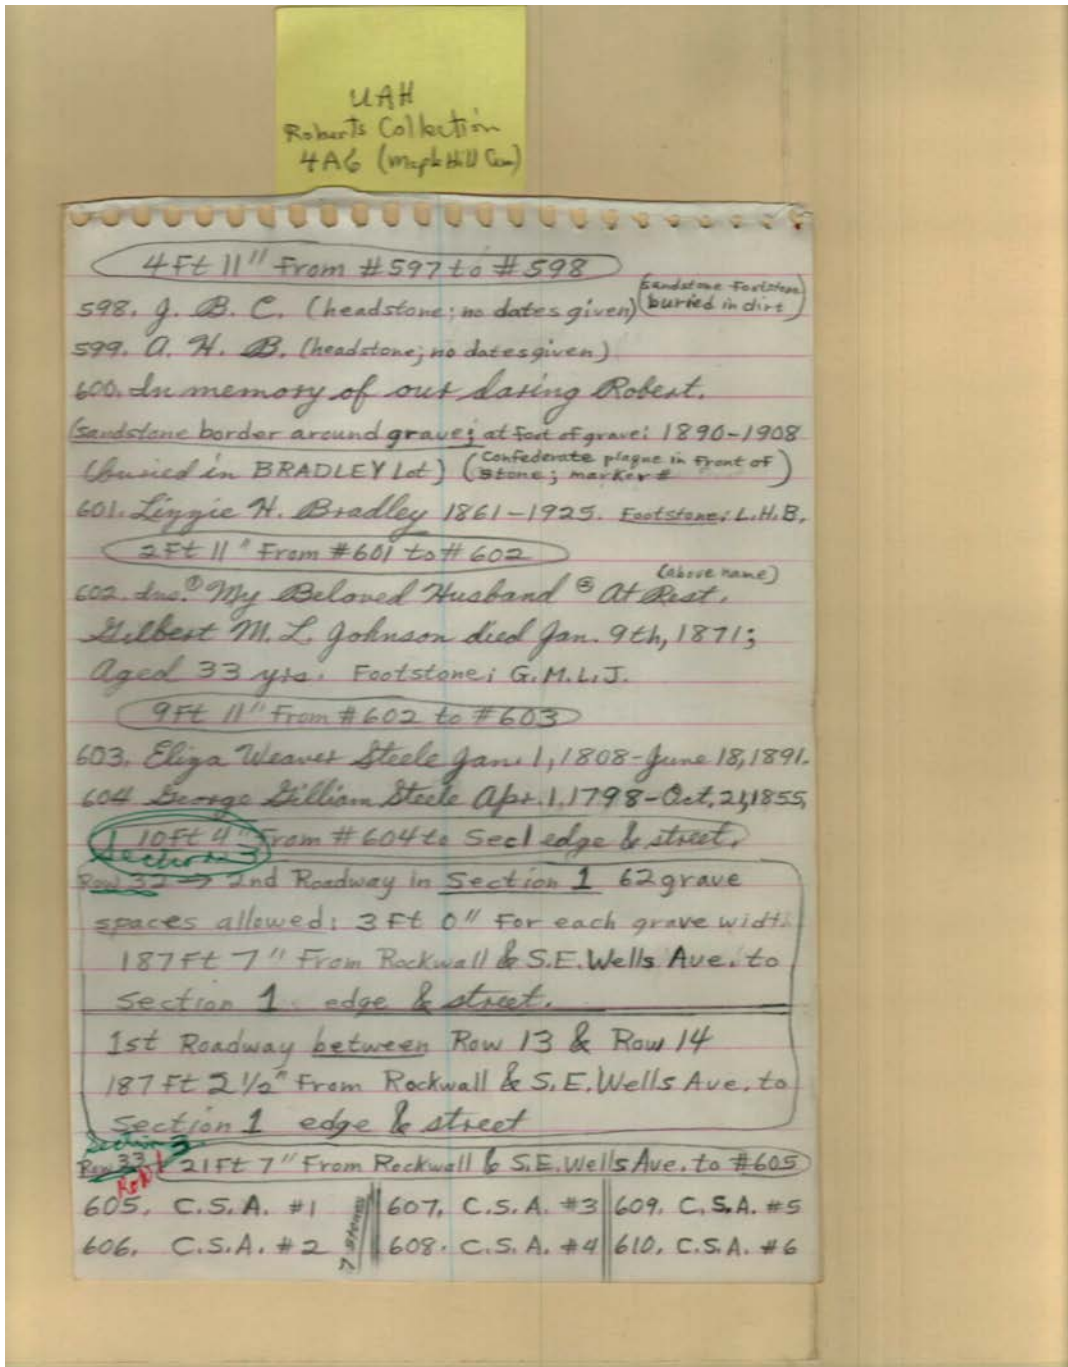 UAH
Roberts Collection
4A6 (Maple Hill Cem)
4Ft 11" From #597 to #598
598. J. B. C. (headstone; no dates given) (sandstone footstone
buried in dirt)
599. A. H. B. (headstone; no dates given)
600. In memory of our daring Robert.
(sandstone border around grave; at foot of grave: 1890-1908
(buried in BRADLEY Lot) (Confederate plaque in front of
stone; marker #)
601. Lizzie H. Bradley 1861-1925. Footstone: L.H.B.
2Ft 11" From #601 to #602
602. Ins. ① My Beloved Husband ② At Rest. (above name)
Gilbert M. L. Johnson died Jan. 9th, 1871;
Aged 33 yrs. Footstone; G.M.L.J.
9Ft 11" From #602 to #603
603. Eliza Weaver Steele Jan. 1, 1808-June 18, 1891.
604 George Gilliam Steele Apr. 1, 1798-Oct. 21, 1855,
10Ft 4" From #604 to Sec1 edge & street.
Section 3
Row 32 → 2nd Roadway in Section 1 62 grave
spaces allowed: 3Ft 0" For each grave width.
187Ft 7" From Rockwall & S.E. Wells Ave. to
Section 1 edge & street.
1st Roadway between Row 13 & Row 14
187Ft 2 1/2" From Rockwall & S.E. Wells Ave. to
Section 1 edge & street
Section 3
Row 33 21Ft 7" From Rockwall & S.E. Wells Ave. to #605
Row 1
605. C.S.A. #1 607. C.S.A. #3 609. C.S.A. #5
606. C.S.A. #2 608. C.S.A. #4 610. C.S.A. #6